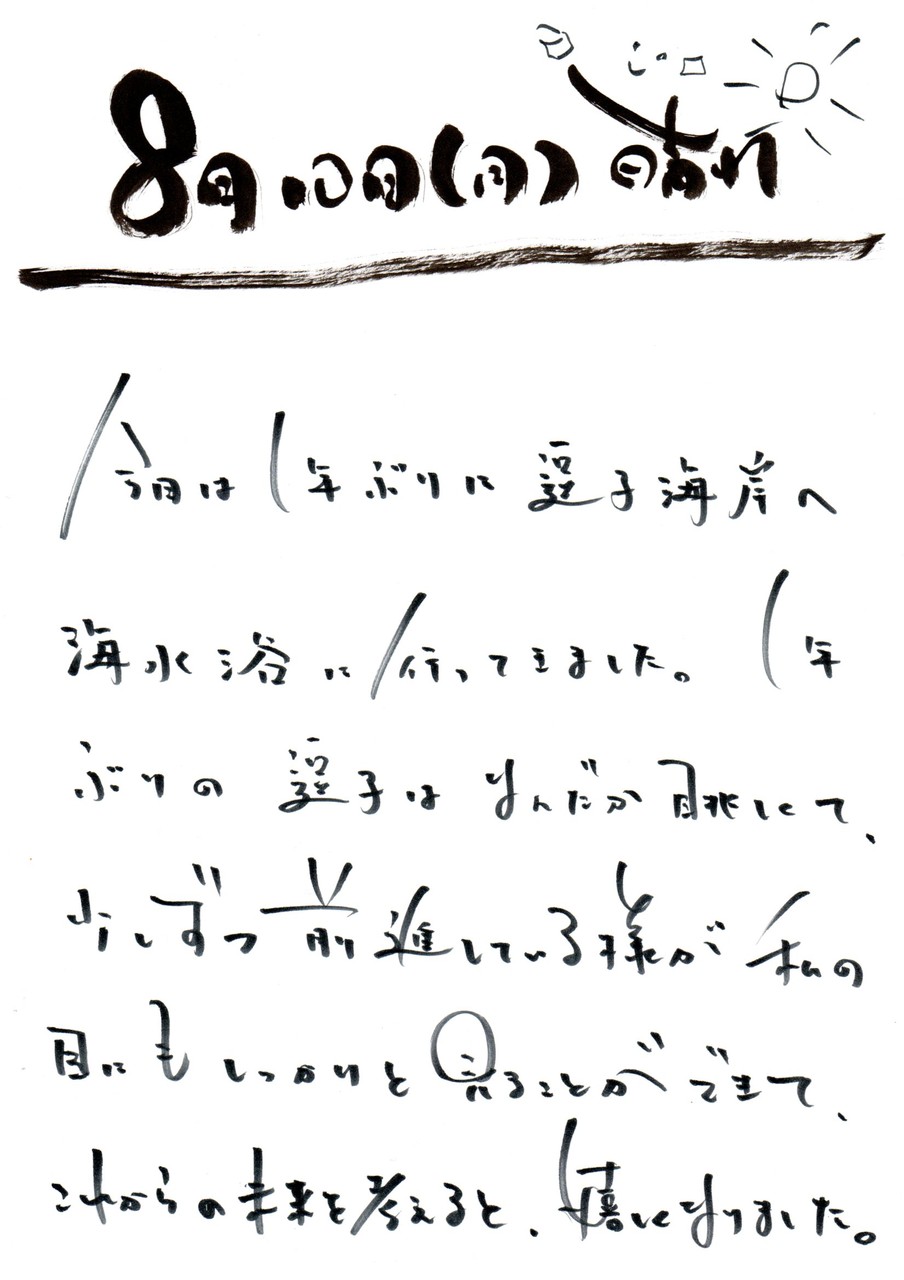 8月10日(月) 晴れ
今日は1年ぶりに逗子海岸へ
海水浴に行ってきました。1年
ぶりの逗子はなんだか眺しくて、
少しずつ前進している様が私の
目にもしっかりと見ることができて、
これからの未来を考えると、嬉しくなりました。